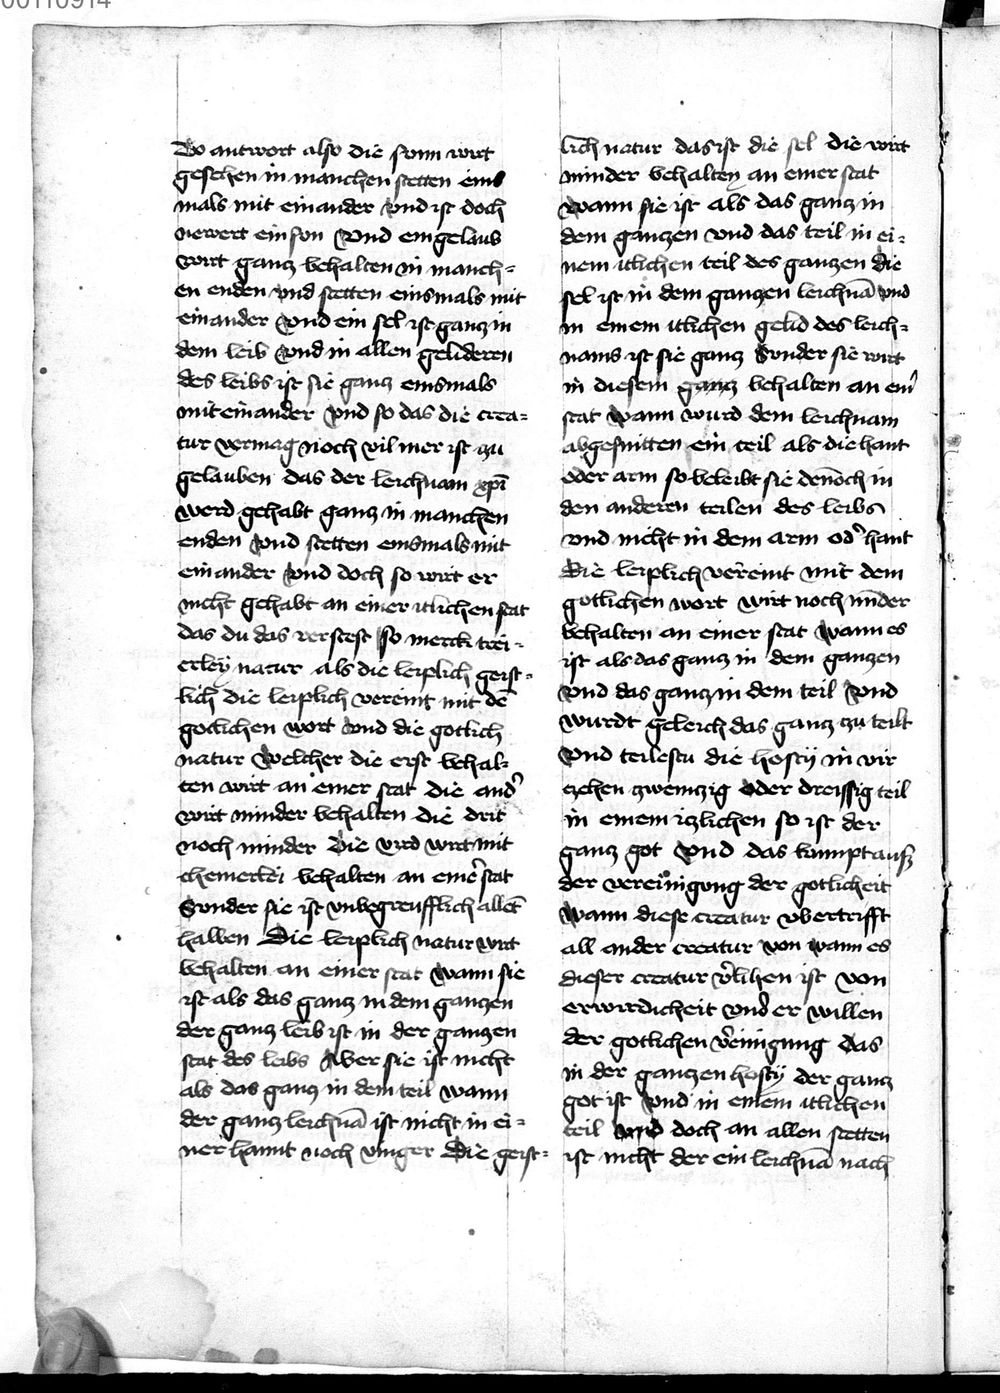 00110914
Do antwort also die sonn wirt
gesehen in manchen stetten eins
mals mit einander vnd ist doch
newert ein son Vnd ein gelaub
wirt ganz behalten in manch=
en enden vnd stetten einsmals mit
einander Vnd ein sel ist ganz in
dem leib Vnd in allen gelideren
des leibs ist sie ganz einsmals
mit einander Vnd so das die crea=
tur vermag noch vil mer ist zu
gelauben das der leichnam xpī
werd gehabt ganz in manchen
enden Vnd stetten einsmals mit
einander Vnd doch so wirt er
nicht gehabt an einer itlichen stat
das du das verstest so merck trei=
erley natur als die leiplich geist=
lich die leiplich vereint mit dē
gotlichen wort Vnd die gotlich
natur Welcher die erst behal=
ten wirt an einer stat die and'
wirt minder behalten die drit
noch minder Die vird wirt mit
chemerlei behalten an eine' stat
Sonder sie ist vnbegreufflich allēt
halben Die leiplich natur wirt
behalten an einer stat Wann sie
ist als das ganz in dem ganzen
der ganz leib ist in der ganzen
stat des leibs Aber sie ist nicht
als das ganz in dem teil wann
der ganz leichnā ist nicht in ei=
ner hannt noch vinger Die geist=
lich natur das ist die sel die wirt
minder behalten an einer stat
Wann sie ist als das ganz in
dem ganzen vnd das teil in ei=
nem itlichen teil des ganzen die
sel ist in dem ganzen leichnā vnd
in einem itlichen gelid des leich=
nams ist sie ganz Sonder sie wirt
in diesem ganz behalten an ein'
stat Wann wurd dem leichnam
abgesnitten ein teil als die hant
oder arm so beleibt sie dēnoch in
den anderen teilen des leibs
vnd nicht in dem arm od' hant
Die leiplich vereint mit dem
gotlichen wort wirt noch mīder
behalten an einer stat Wann es
ist als das ganz in dem ganzen
vnd das ganz in dem teil Vnd
wurdt geleich das ganz zu teilt
Vnd teilestu die hostij in vir
zehen zweinzig oder dreissig teil
in einem izlichen so ist der
ganz got Vnd das kumpt ausz
der vereinigung der gotlicheit
Wann diese creatur vbertrifft
all ander creatur von wann es
dieser creatur v'lihen ist von
erwirdicheit vnd er willen
der gotlichen v'einigung das
in der ganzen hostij der ganz
got ist Vnd in einem itlichen
teil Vnd doch an allen stetten
ist nicht der ein leichnā nach